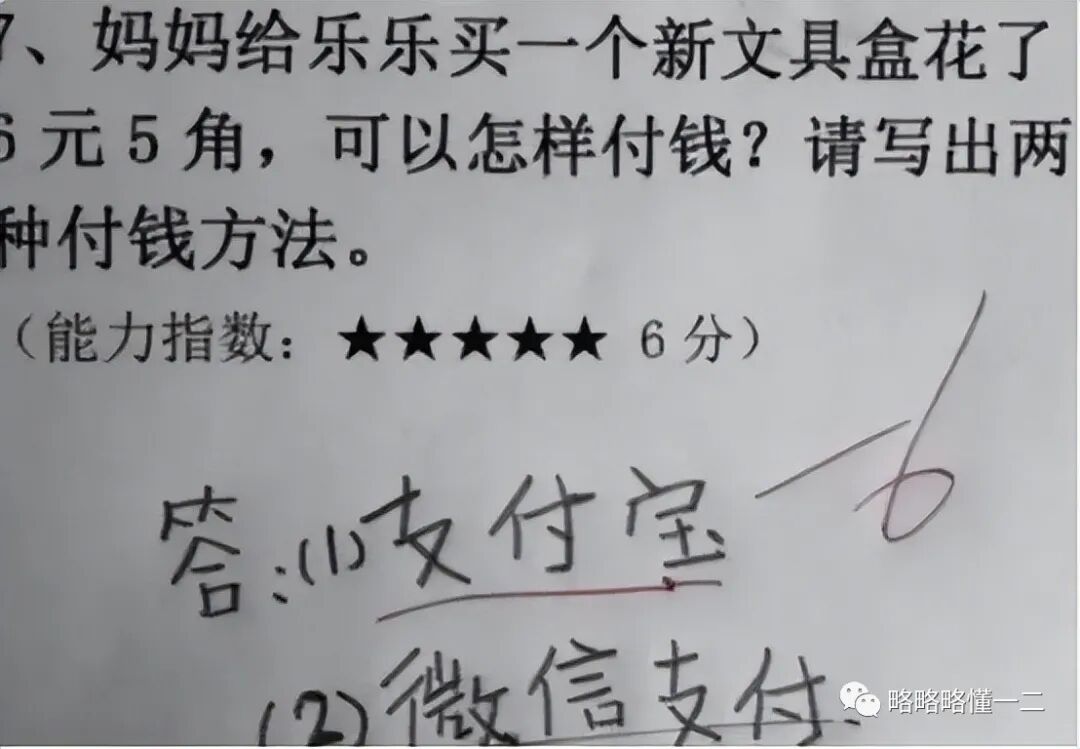 7、妈妈给乐乐买一个新文具盒花了
6元5角，可以怎样付钱？请写出两
种付钱方法。
（能力指数：★★★★★ 6分）
-6
答：(1)支付宝
(2)微信支付.
略略略懂一二